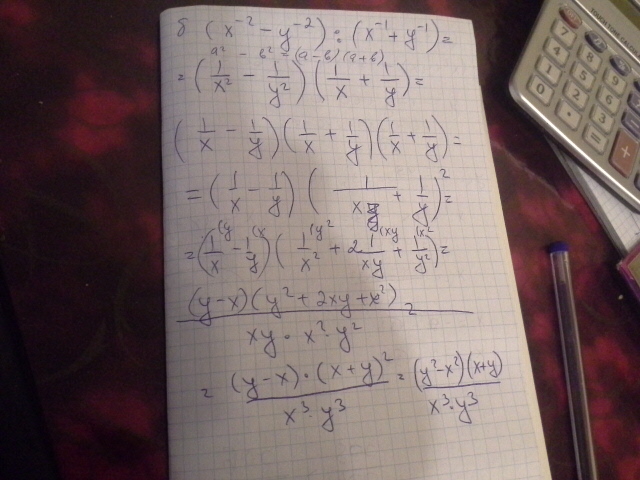 б (x⁻² − y⁻²) : (x⁻¹ + y⁻¹) =
a² − b² = (a−b)(a+b)
= (1/x² − 1/y²) (1/x + 1/y) =
(1/x − 1/y)(1/x + 1/y)(1/x + 1/y) =
= (1/x − 1/y) (1/x + 1/y)² =
= (1/x (y − 1/y (x) (1/x² (y² + 2 1/xy (xy + 1/y² (x²) =
(y−x)(y² + 2xy + x²) / xy · x² · y² =
= (y−x) · (x+y)² / x³ · y³ = (y²−x²)(x+y) / x³ · y³
7
8
9
4
5
6
1
2
3
0
.
=
+